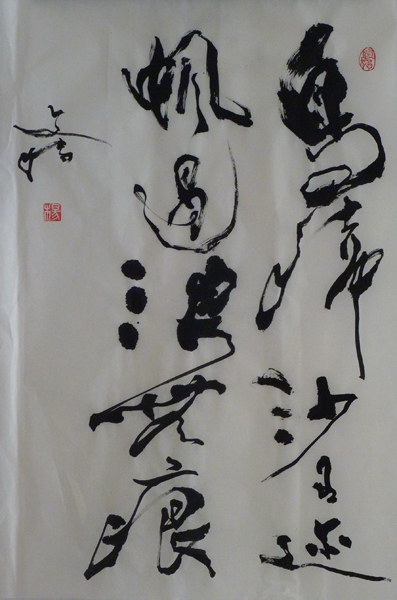 鳥歸沙有迹
帆過浪無痕